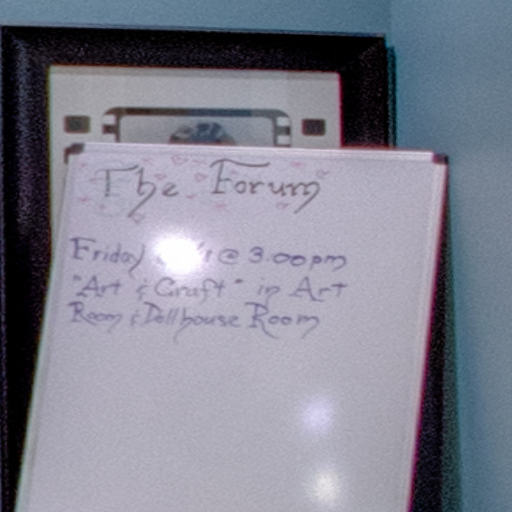 The Forum
Friday @ 3:00pm
"Art & Craft" in Art
Room & Dollhouse Room